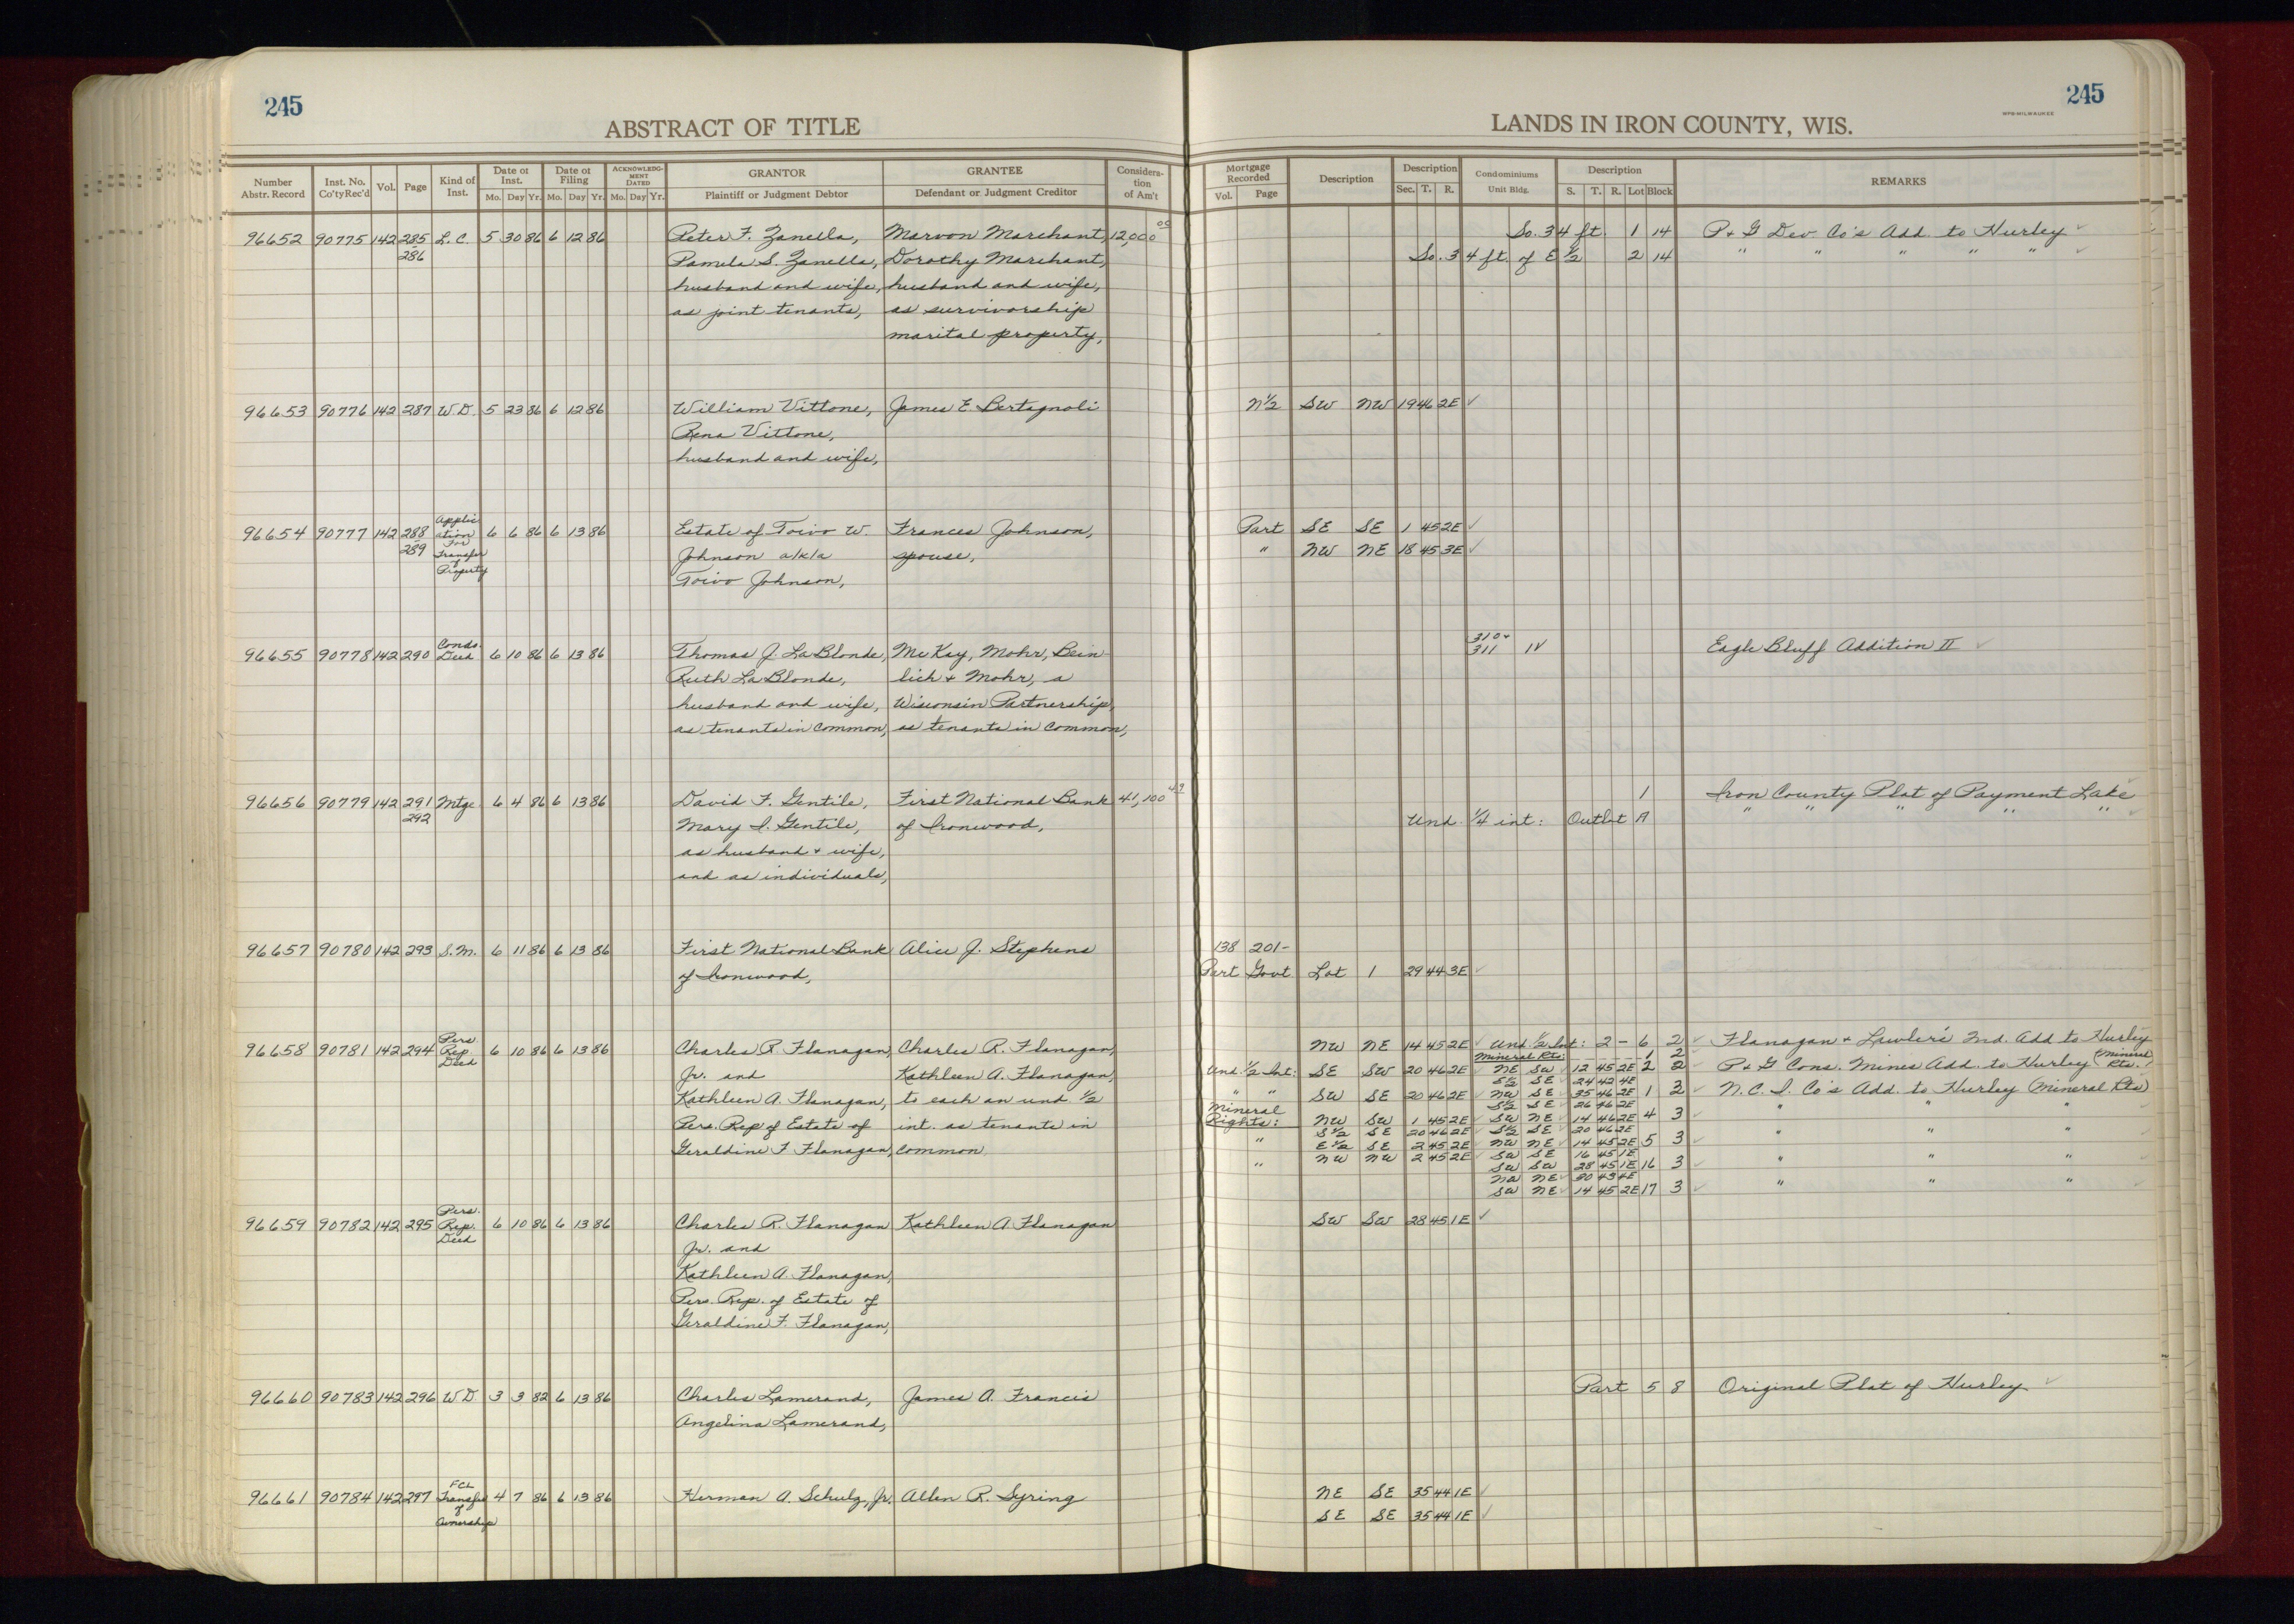 245
ABSTRACT OF TITLE
Number Abstr. Record Inst. No. Co'tyRec'd Vol. Page Kind of Inst. Date of Inst. Mo. Day Yr. Date of Filing Mo. Day Yr. ACKNOWLEDG-MENT DATED Mo. Day Yr. GRANTOR Plaintiff or Judgment Debtor GRANTEE Defendant or Judgment Creditor Considera-tion of Am't
96652 90775 142 285 L.C. 5 30 86 6 12 86 Peter F. Zanella, Marvon Marchant, 12,000 00
286 Pamela S. Zanella, Dorothy Marchant,
husband and wife, husband and wife,
as joint tenants, as survivorship
marital property,
96653 90776 142 287 W.D. 5 23 86 6 12 86 William Vittone, James E. Bertagnoli
Rena Vittone,
husband and wife,
96654 90777 142 288 Applic ation For Transfer of Property 6 6 86 6 13 86 Estate of Toivo W. Frances Johnson,
289 Johnson a/k/a spouse,
Toivo Johnson,
96655 90778 142 290 Condo. Deed 6 10 86 6 13 86 Thomas J. La Blonde, McKey, Mohr, Bein
Ruth La Blonde, lich + Mohr, a
husband and wife, Wisconsin Partnership,
as tenants in common, as tenants in common,
96656 90779 142 291 Mtge 6 4 86 6 13 86 David F. Gentile, First National Bank 41,100 49
292 Mary I. Gentile, of Ironwood,
as husband + wife,
and as individuals,
96657 90780 142 293 S.M. 6 11 86 6 13 86 First National Bank Alice J. Stephens
of Ironwood,
96658 90781 142 294 Pers. Rep. Deed 6 10 86 6 13 86 Charles R. Flanagan, Charles R. Flanagan,
Jr. and Kathleen A. Flanagan,
Kathleen A. Flanagan, to each an und. 1/2
Pers. Rep of Estate of int. as tenants in
Geraldine F Flanagan, common
96659 90782 142 295 Pers. Rep. Deed 6 10 86 6 13 86 Charles R. Flanagan Kathleen A. Flanagan
Jr. and
Kathleen A. Flanagan,
Pers. Rep. of Estate of
Geraldine F. Flanagan,
96660 90783 142 296 W.D 3 3 82 6 13 86 Charles Lamerand, James A. Francis
Angelina Lamerand,
96661 90784 142 297 FCL Transfer of Ownership 4 7 86 6 13 86 Herman A. Schulz, Jr. Allen R. Syring
245
WPB-MILWAUKEE
LANDS IN IRON COUNTY, WIS.
Mortgage Recorded Vol. Page Description Description Sec. T. R. Condominiums Unit Bldg. Description S. T. R. Lot Block REMARKS
So. 34 ft. 1 14 P + G Dev Co's Add. to Hurley
So. 34 ft. of E 1/2 2 14 " " " " "
N 1/2 SW NW 19 46 2E
Part SE SE 1 45 2E
" NW NE 18 45 3E
310 +
311 IV Eagle Bluff Addition II
1 Iron County Plat of Payment Lake
Und. 1/4 int: Outlot A " " " " "
138 201-
Part Govt Lot 1 29 44 3E
NW NE 14 45 2E Und. 1/2 Int: 2 - 6 2 Flanagan + Lawler's 2nd. Add to Hurley
Mineral Rts: 1 2
Und. 1/2 Int: SE SW 20 46 2E NE SW 12 45 2E 2 2 P + G Cons. Mines Add. to Hurley (Mineral Rts.)
S 1/2 SE 24 42 4E
" " SW SE 20 46 2E NW SE 35 46 2E 1 3 N. C. I. Co's Add. to Hurley (Mineral Rts)
Mineral S 1/2 SE 26 46 2E
Rights: NW SW 1 45 2E SW NE 14 46 2E 4 3 " " "
S 1/2 SE 20 46 2E S 1/2 SE 20 46 2E
" E 1/2 SE 2 45 2E NW NE 14 45 2E 5 3 " " "
" NW NW 2 45 2E SW SE 16 45 1E
SW SW 28 45 1E 16 3 " " "
NW NE 30 43 4E
SW NE 14 45 2E 17 3 " " "
SW SW 28 45 1E
Part 5 8 Original Plat of Hurley
NE SE 35 44 1E
SE SE 35 44 1E